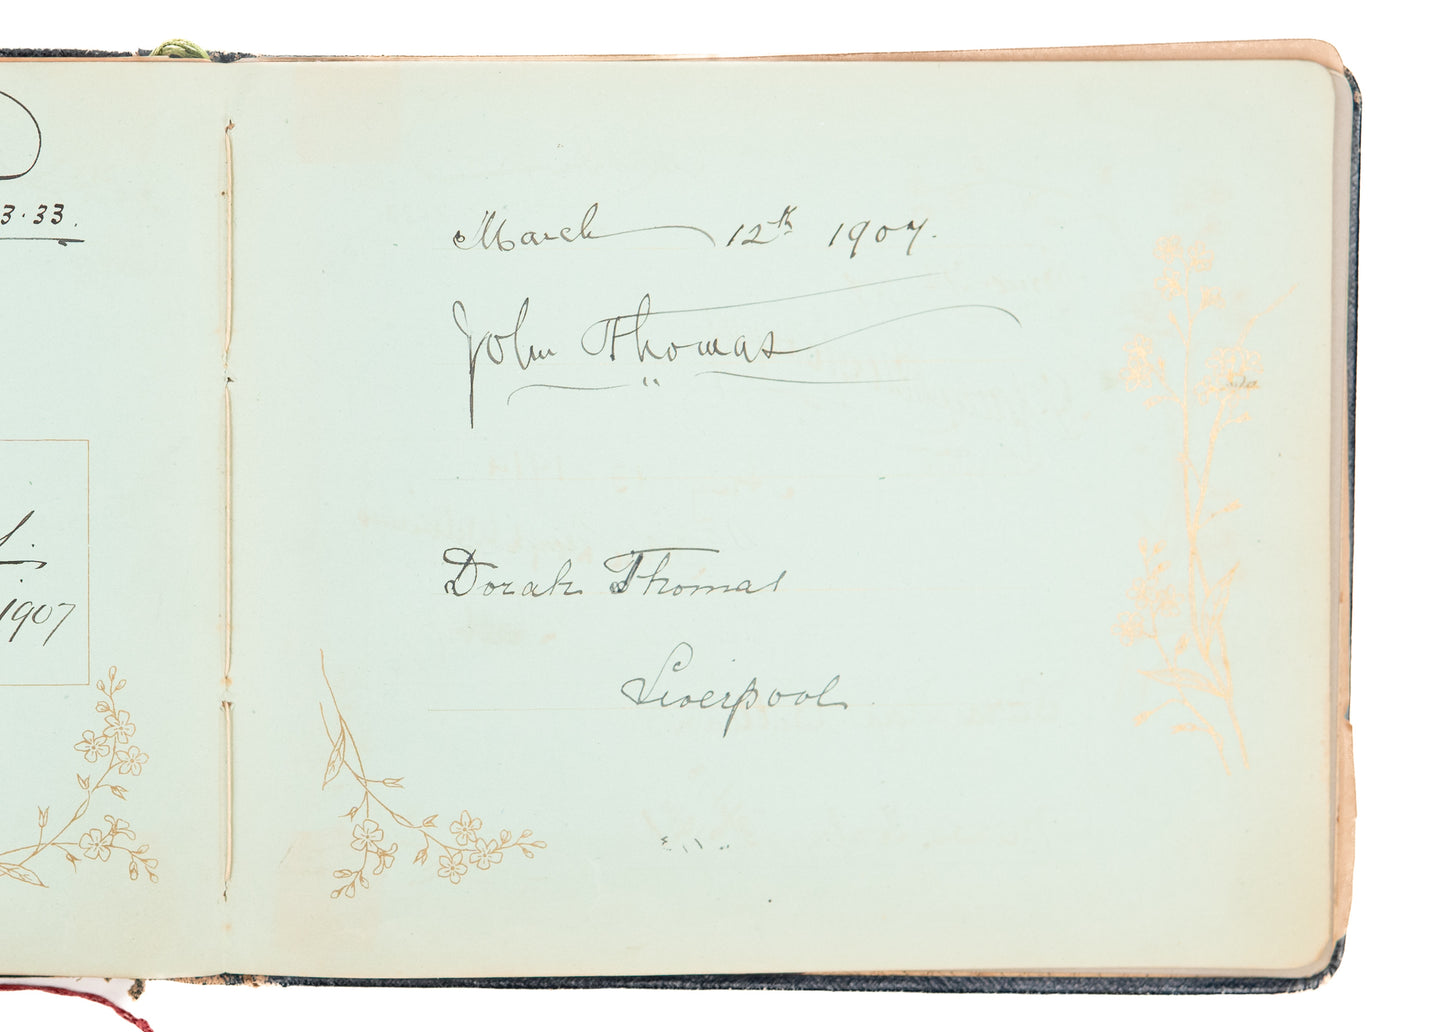 3·33.
1907
March 12th 1907.
John Thomas
Dorah Thomas
Liverpool